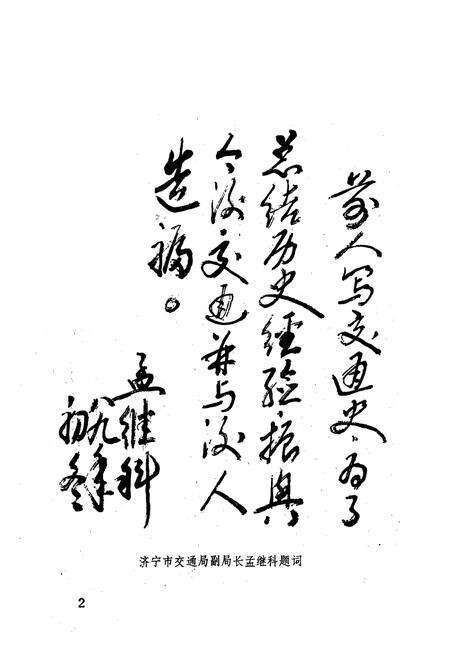 前人写交通史、为了
总结历史经验、振兴
今后交通并与后人
造福。
孟继科
八九年
初冬
济宁市交通局副局长孟继科题词
2